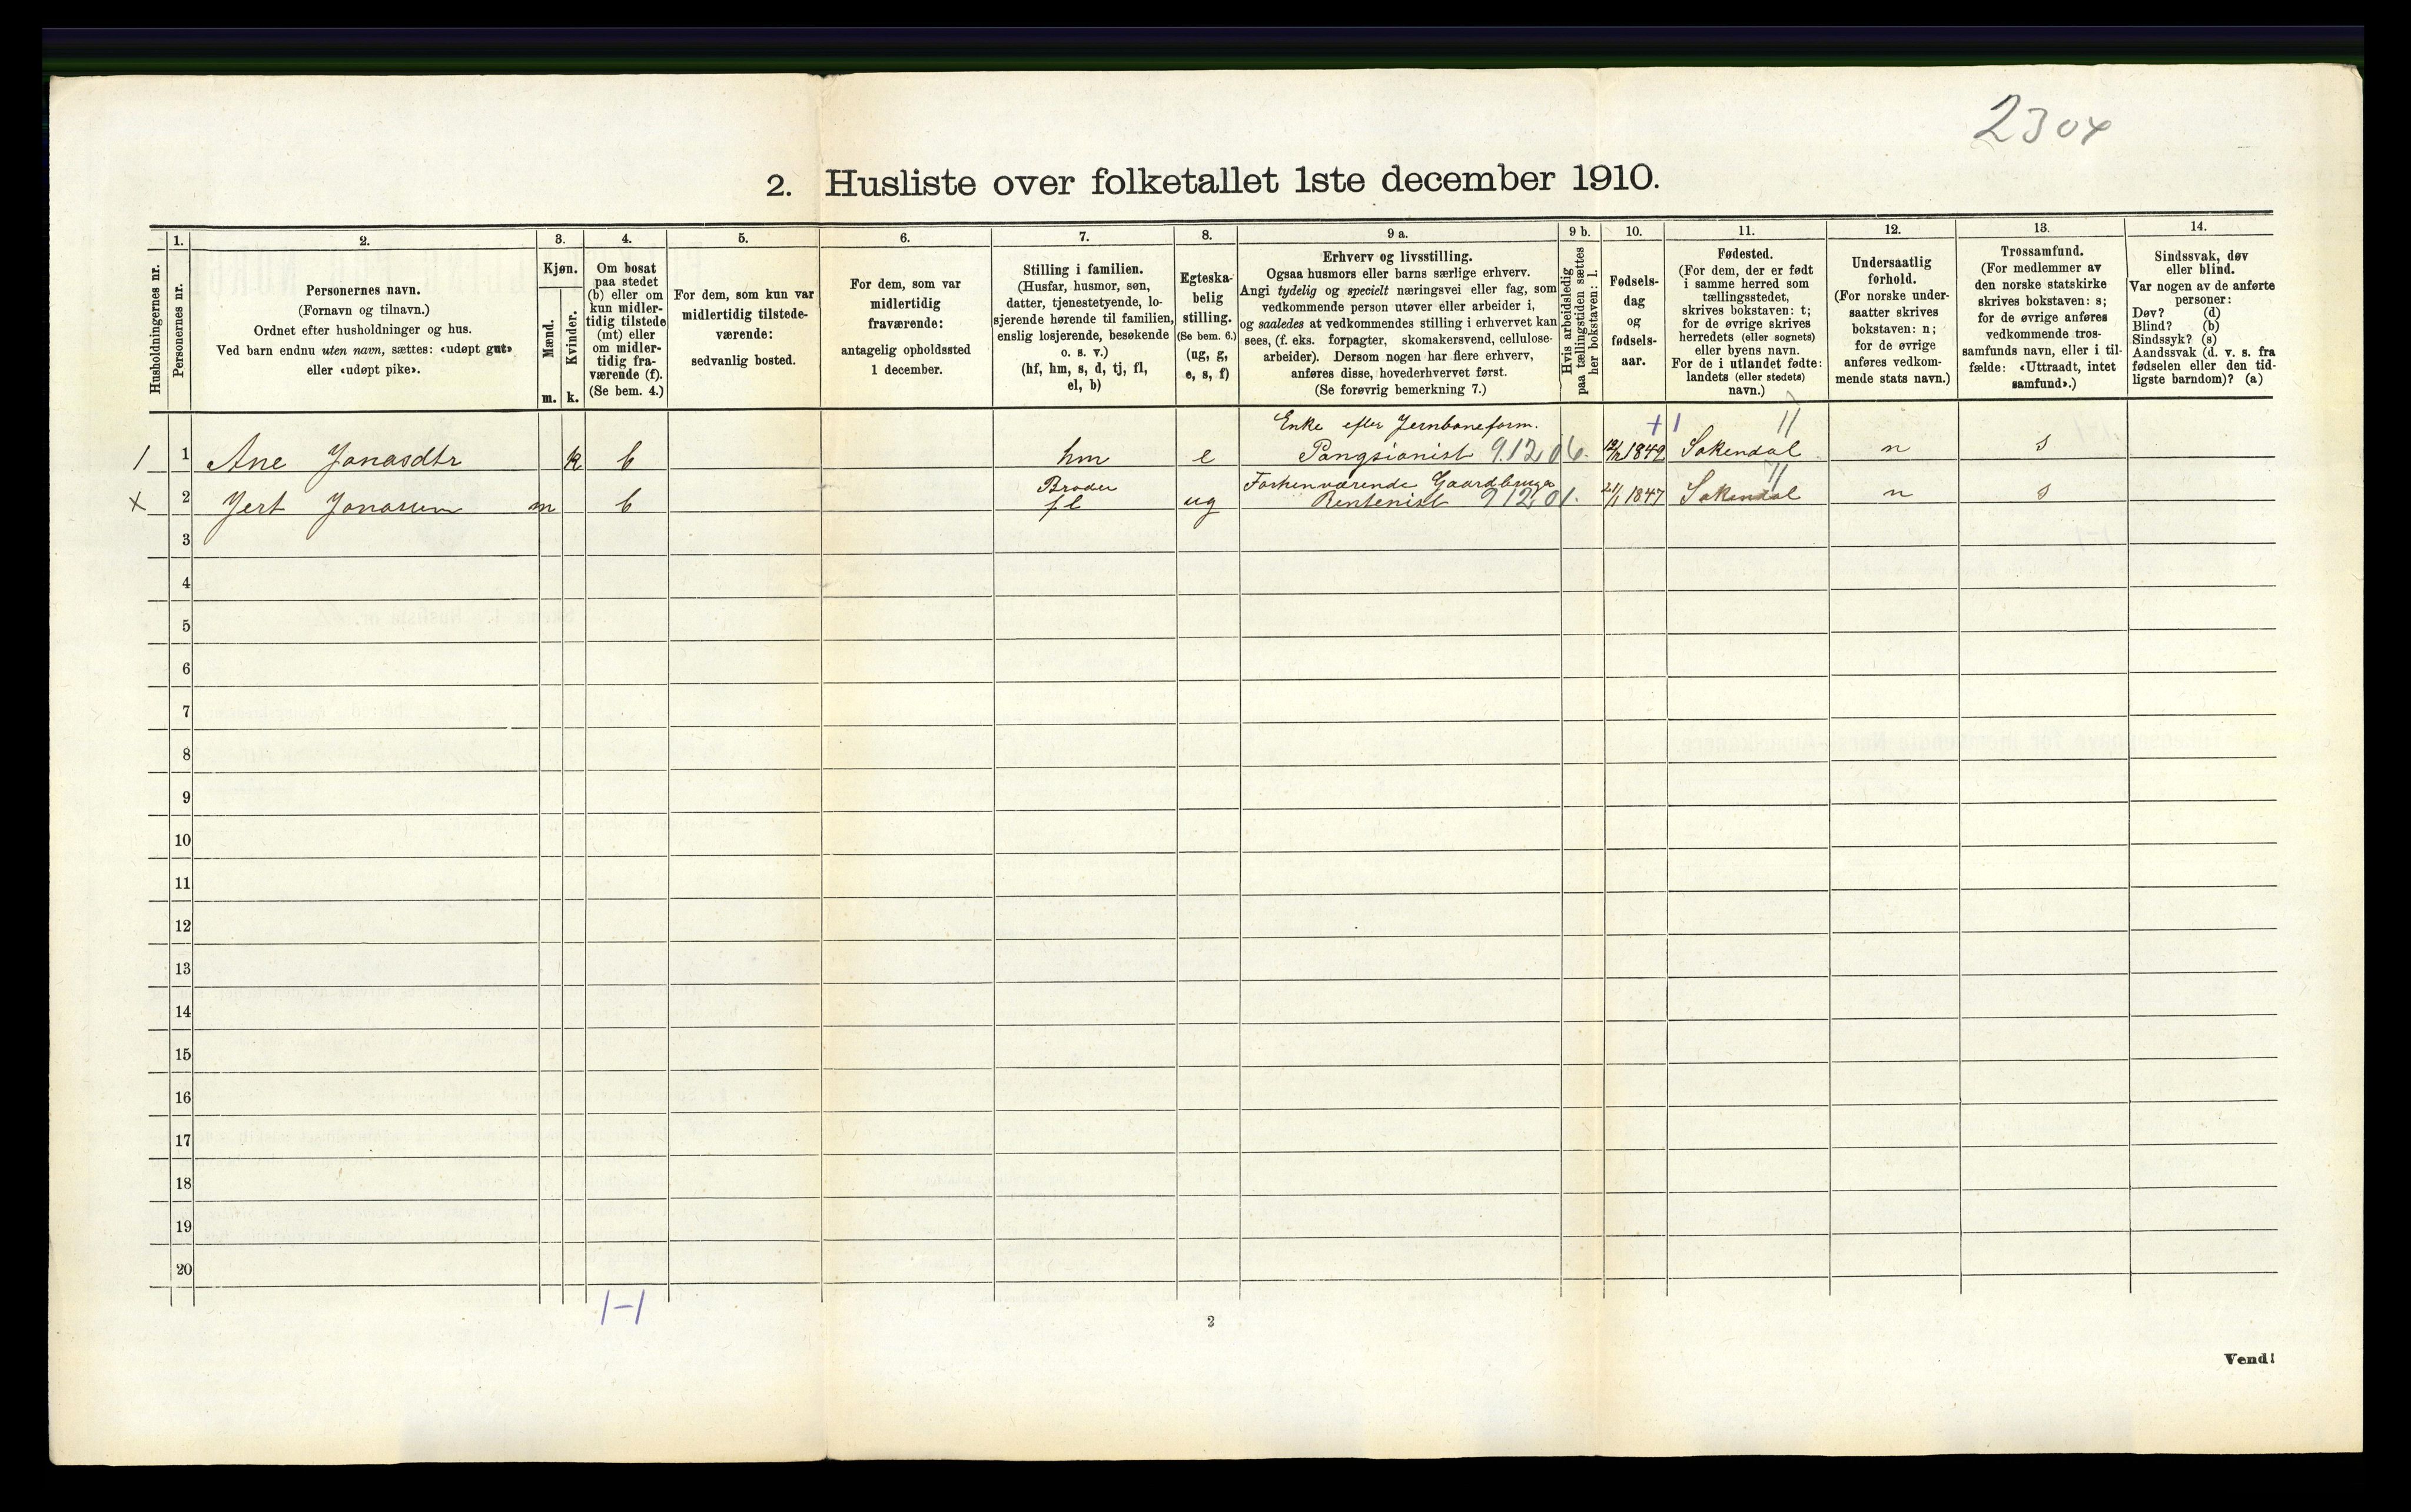 2304
2. Husliste over folketallet 1ste december 1910.
Husholdningernes nr.
1.
Personernes nr.
2.
Personernes navn.
(Fornavn og tilnavn.)
Ordnet efter husholdninger og hus.
Ved barn endnu uten navn, sættes: «udøpt gut»
eller «udøpt pike».
3.
Kjøn.
Mænd.
Kvinder.
m. k.
4.
Om bosat
paa stedet
(b) eller om
kun midler-
tidig tilstede
(mt) eller
om midler-
tidig fra-
værende (f).
(Se bem. 4.)
5.
For dem, som kun var
midlertidig tilstede-
værende:
sedvanlig bosted.
6.
For dem, som var
midlertidig
fraværende:
antagelig opholdssted
1 december.
7.
Stilling i familien.
(Husfar, husmor, søn,
datter, tjenestetyende, lo-
sjerende hørende til familien,
enslig losjerende, besøkende
o. s. v.)
(hf, hm, s, d, tj, fl,
el, b)
8.
Egteska-
belig
stilling.
(Se bem. 6.)
(ug, g,
e, s, f)
9 a.
Erhverv og livsstilling.
Ogsaa husmors eller barns særlige erhverv.
Angi tydelig og specielt næringsvei eller fag, som
vedkommende person utøver eller arbeider i,
og saaledes at vedkommendes stilling i erhvervet kan
sees, (f. eks. forpagter, skomakersvend, cellulose-
arbeider). Dersom nogen har flere erhverv,
anføres disse, hovederhvervet først.
(Se forøvrig bemerkning 7.)
9 b.
Hvis arbeidsledig
paa tællingstiden sættes
her bokstaven: l.
10.
Fødsels-
dag
og
fødsels-
aar.
11.
Fødested.
(For dem, der er født
i samme herred som
tællingsstedet,
skrives bokstaven: t;
for de øvrige skrives
herredets (eller sognets)
eller byens navn.
For de i utlandet fødte:
landets (eller stedets)
navn.)
12.
Undersaatlig
forhold.
(For norske under-
saatter skrives
bokstaven: n;
for de øvrige
anføres vedkom-
mende stats navn.)
13.
Trossamfund.
(For medlemmer av
den norske statskirke
skrives bokstaven: s;
for de øvrige anføres
vedkommende tros-
samfunds navn, eller i til-
fælde: «Uttraadt, intet
samfund».)
14.
Sindssvak, døv
eller blind.
Var nogen av de anførte
personer:
Døv? (d)
Blind? (b)
Sindssyk? (s)
Aandssvak (d. v. s. fra
fødselen eller den tid-
ligste barndom)? (a)
Enke efter Jernbaneform. +1 11
1 1 Ane Jonasdtr k b hm e Pangsionist 9.12 06. 1849 Sokendal n s
Broder Forhenværende Gaardbruger 11
x 2 Jert Jonassen m b fl ug Rentenist 912.01. 21/1 1847 Sokendal n s
3
4
5
6
7
8
9
10
11
12
13
14
15
16
17
18
19
20
1-1
2
Vend!